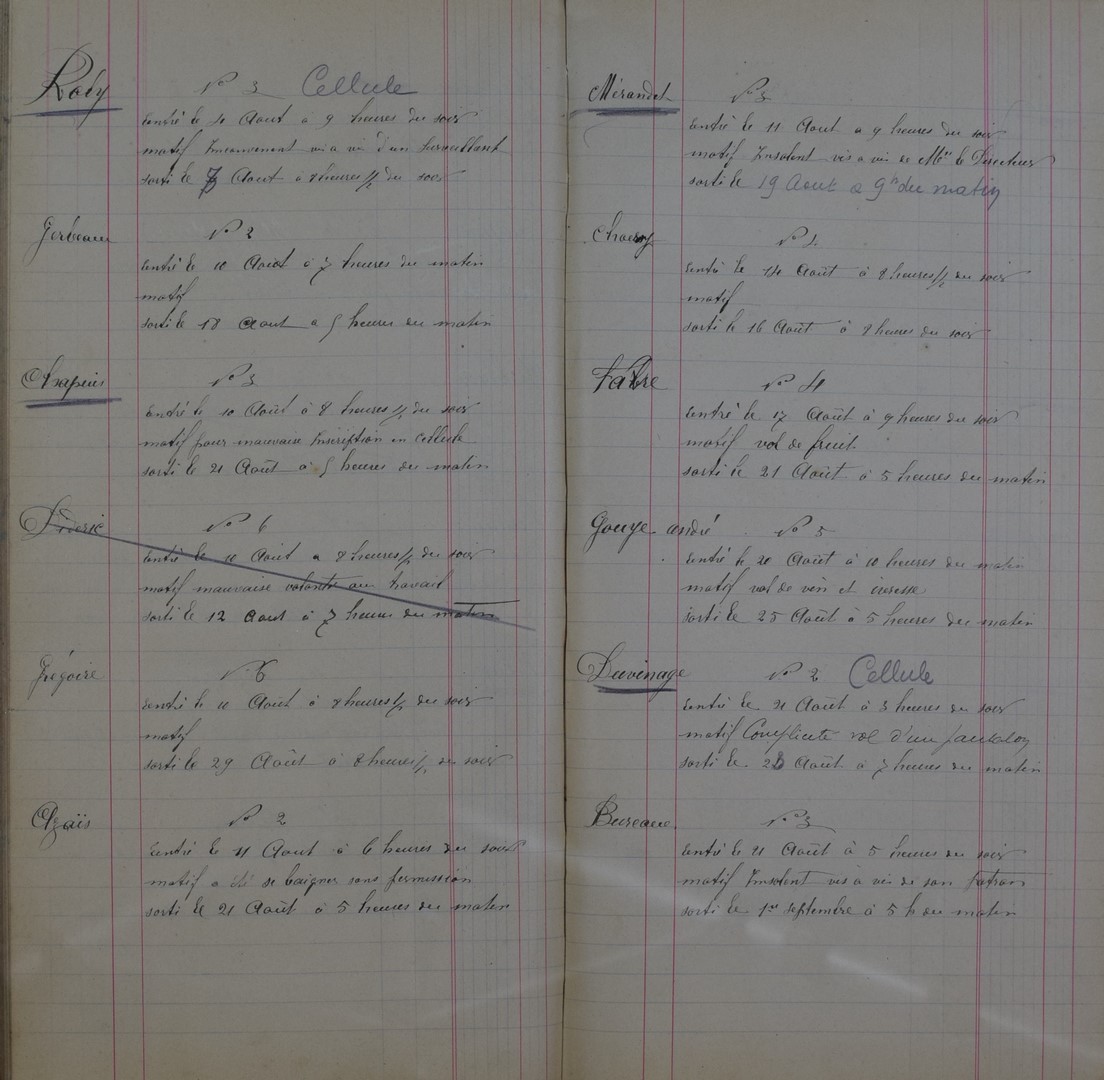 Roby N° 3 Cellule
entré le 4 Août à 9 heures du soir
motif Inconvenant vis a vis d'un surveillant
sorti le 7 Août à 8 heures 1/2 du soir
Gerbeau N° 2
entré le 10 Août à 7 heures du matin
motif
sorti le 18 Août a 5 heures du matin
Chapuis N° 3
entré le 10 Août à 8 heures 1/2 du soir
motif pour mauvaise Inscription en cellule
sorti le 21 Août à 5 heures du matin
N° 6
entré le 10 Août a 8 heures 1/2 du soir
motif mauvaise volonté au travail
sorti le 12 Août à 7 heures du matin
Grégoire N° 6
entré le 10 Août à 8 heures 1/2 du soir
motif
sorti le 29 Août à 8 heures 1/2 du soir
Azaïs N° 2
Entré le 11 Août à 6 heures du soir
motif a été se baigner sans permission
sorti le 21 Août à 5 heures du matin
Mérandet N° 3
entré le 11 Août a 9 heures du soir
motif Insolent vis a vis de Mr le Directeur
sorti le 19 Août a 9h du matin
N° 1
entré le 14 Août à 8 heures 1/2 du soir
motif
sorti le 16 Août à 8 heures du soir
Fabre N° 4
entré le 17 Août à 9 heures du soir
motif vol de fruit
sorti le 21 Août à 5 heures du matin
Gouye andré N° 5
entré le 20 Août à 10 heures du matin
motif vol de vin et ivresse
sorti le 25 Août à 5 heures du matin
Duvinage N° 2 Cellule
entré le 21 Août à 3 heures du soir
motif Complicité vol d'un pantalon
sorti le 28 Août à 7 heures du matin
Bureau N° 3
entré le 21 Août à 5 heures du soir
motif Insolent vis a vis de son patron
sorti le 1er septembre à 5 h du matin